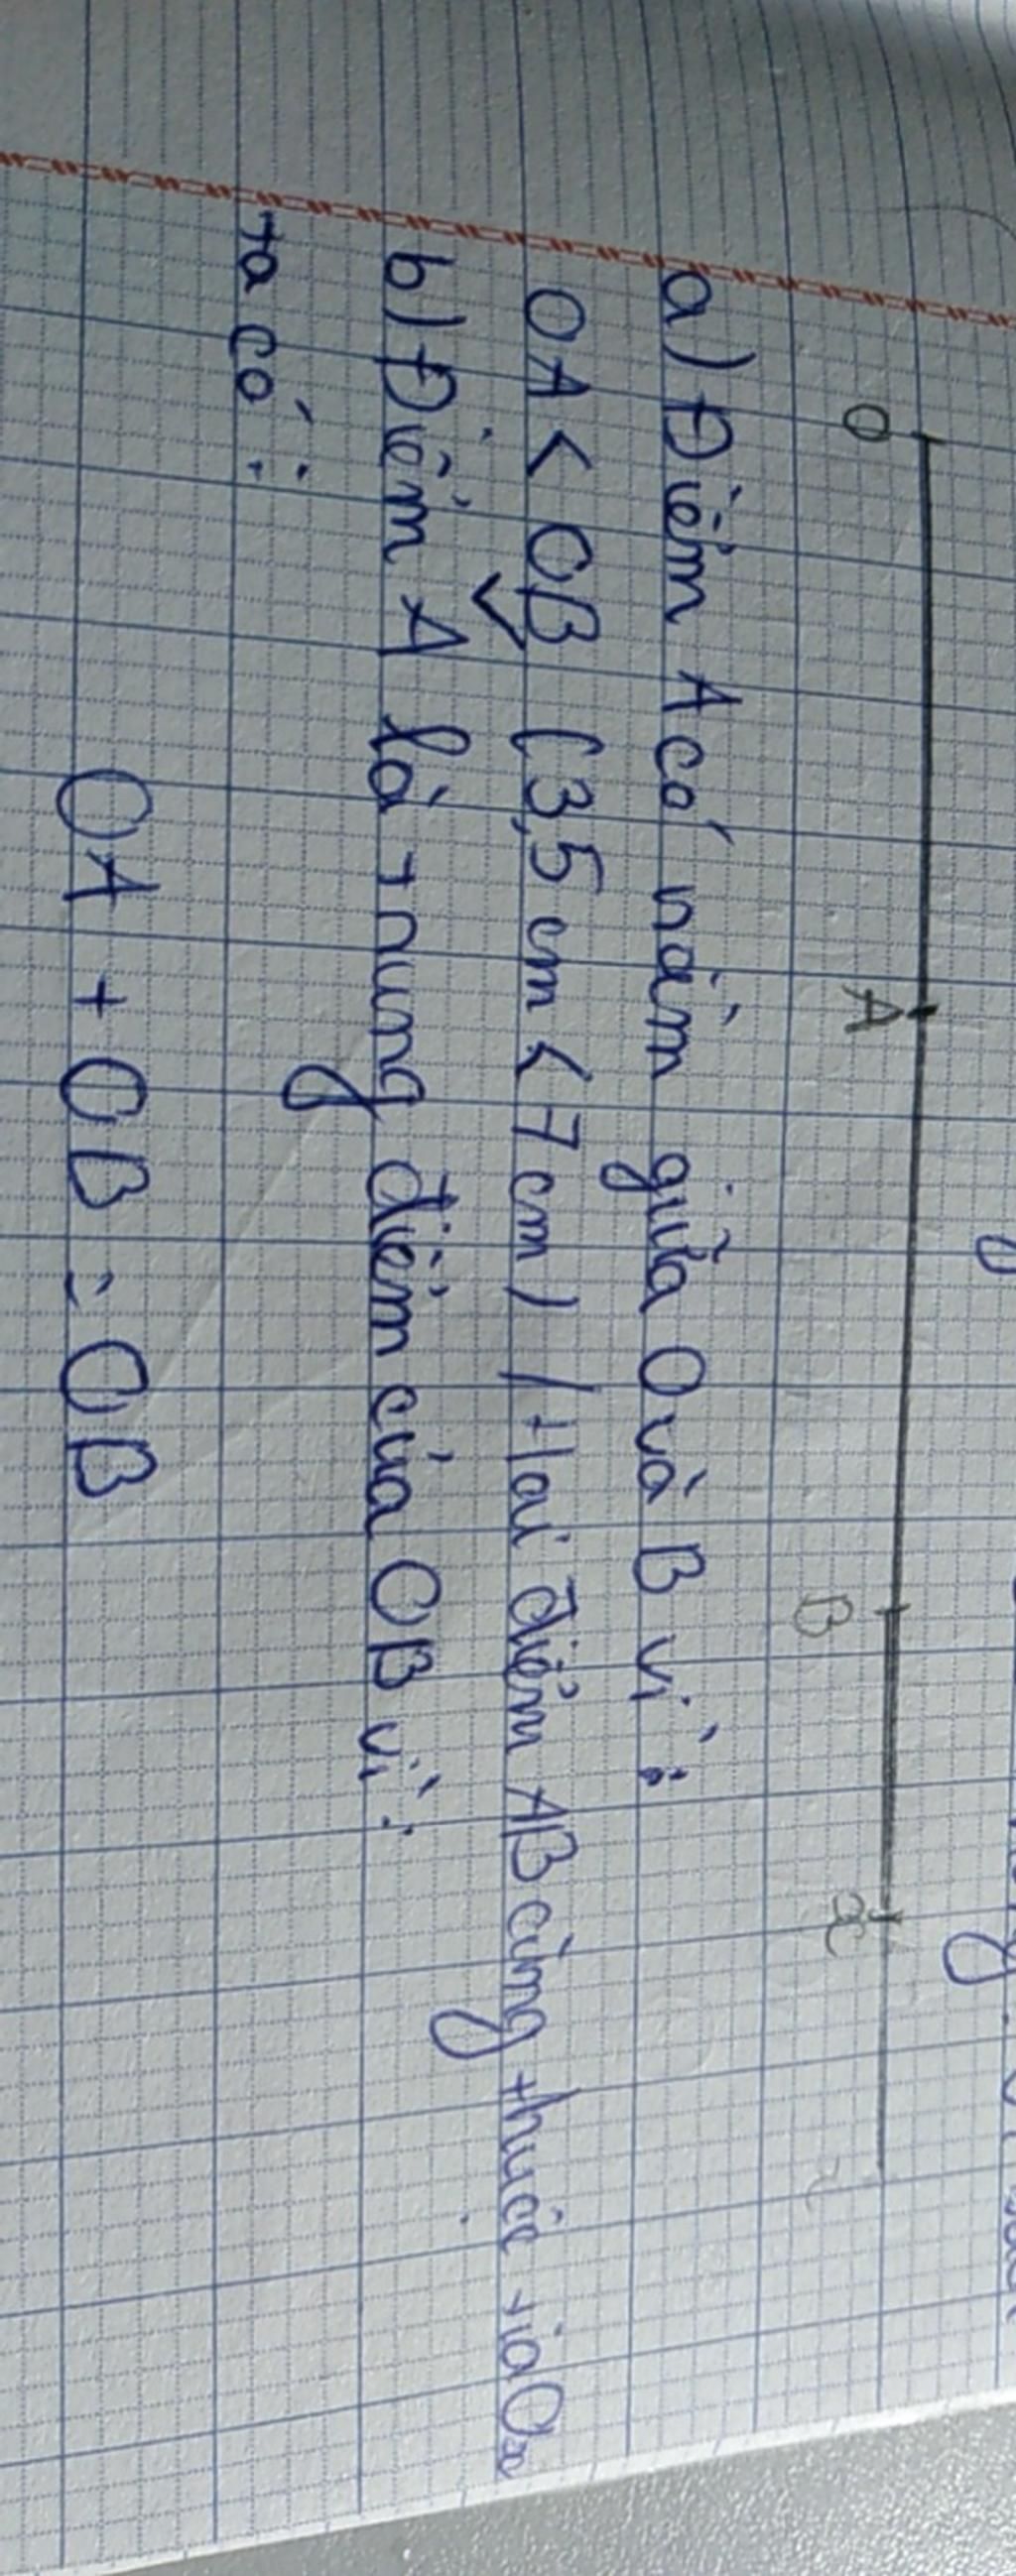 O A B x
a) Điểm A có nằm giữa O và B vì:
OA < OB (3,5 cm < 7 cm) / Hai điểm AB cùng thuộc tia Ox
b) Điểm A là trung điểm của OB vì:
ta có:
OA + OB = OB